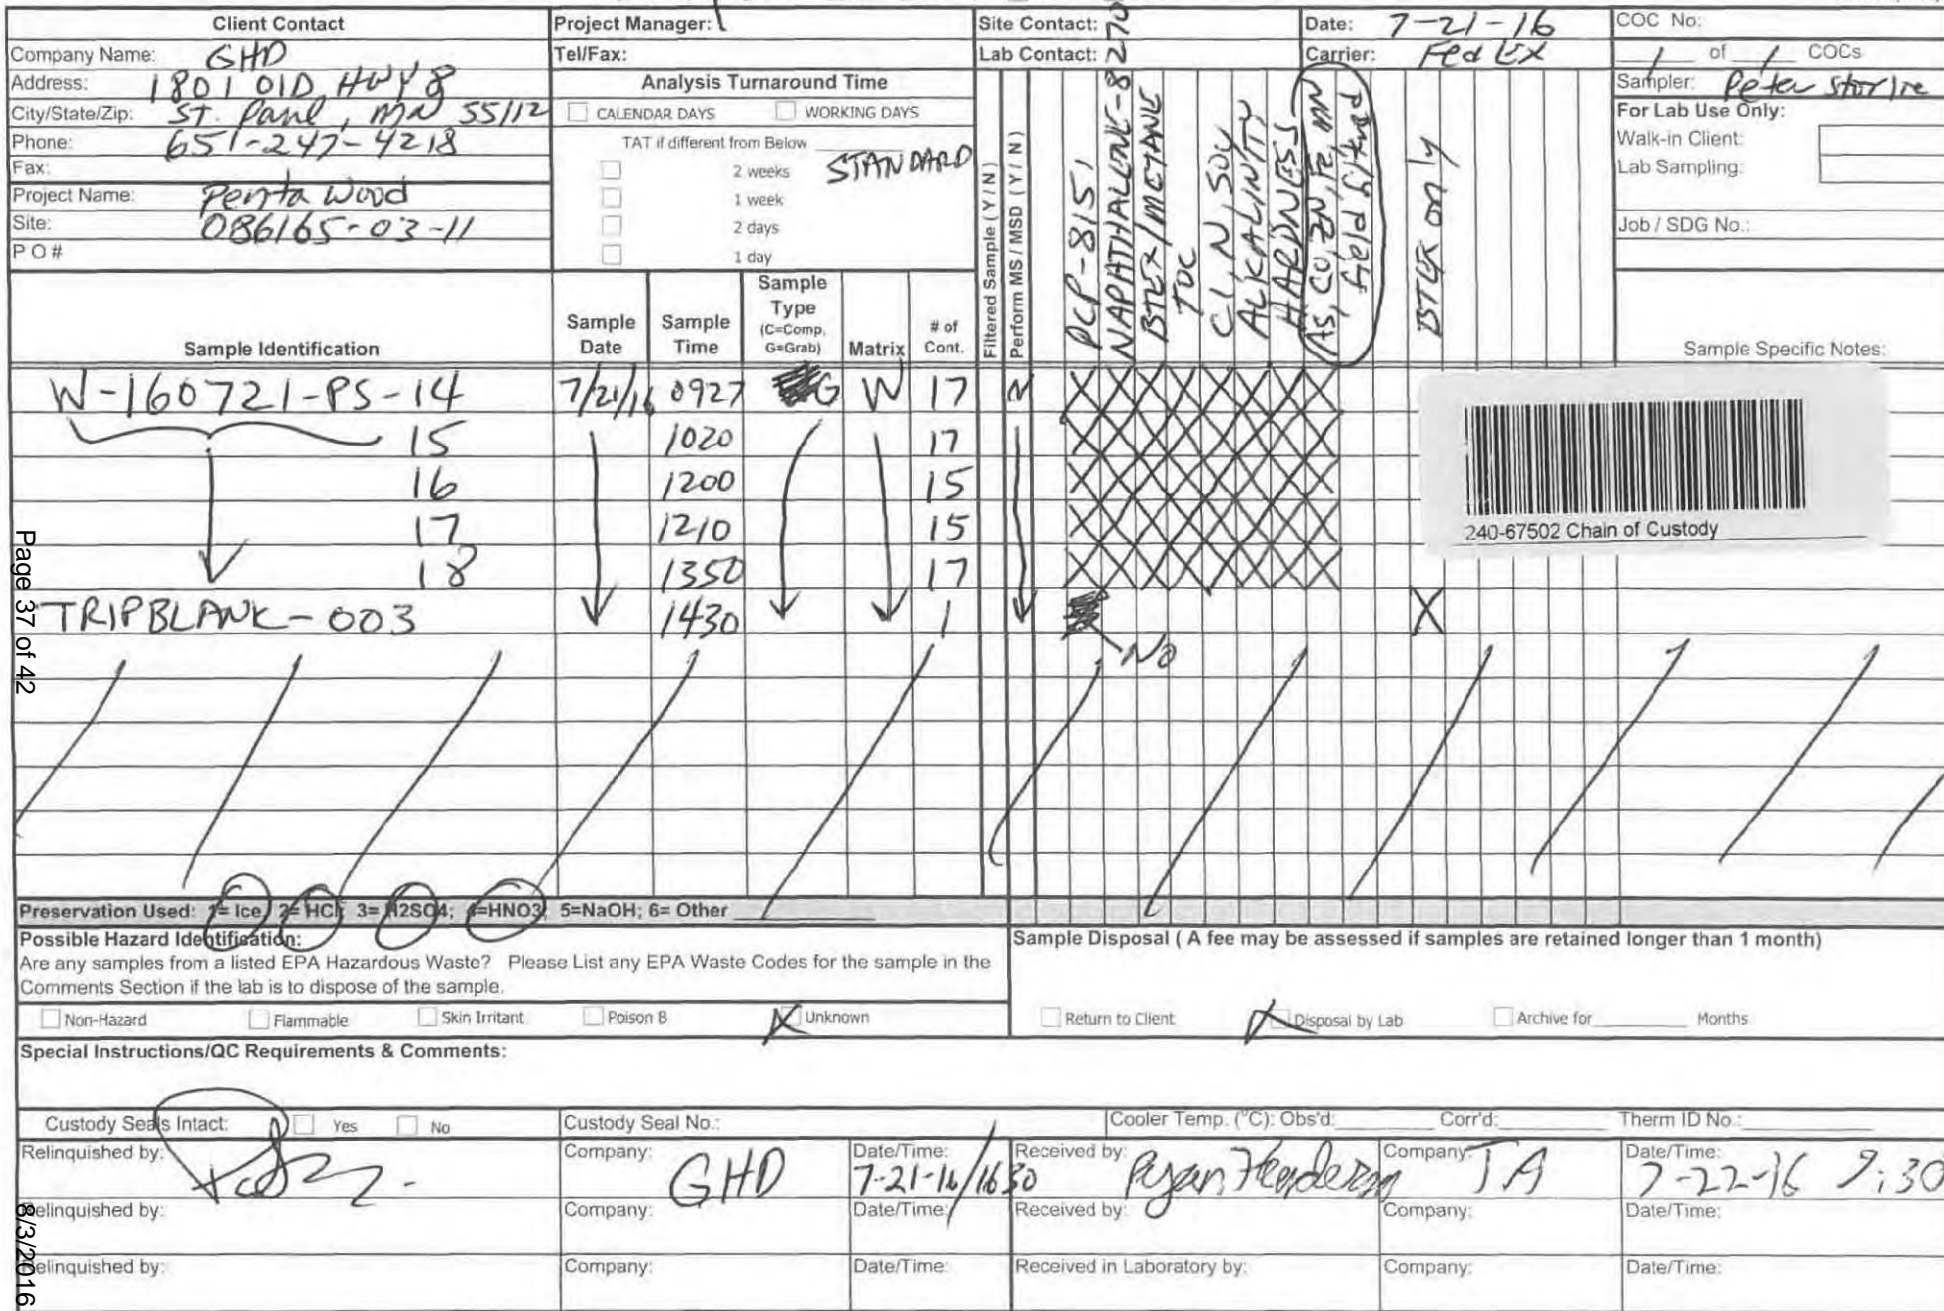 Client Contact
Company Name: GHD
Address: 1801 OLD HWY 8
City/State/Zip: ST. Paul, MN 55112
Phone: 651-247-4218
Fax:
Project Name: Penta Wood
Site: 086165-03-11
P O #
Project Manager:
Tel/Fax:
Analysis Turnaround Time
CALENDAR DAYS WORKING DAYS
TAT if different from Below STANDARD
2 weeks
1 week
2 days
1 day
Site Contact:
Lab Contact:
Date: 7-21-16
Carrier: Fed EX
COC No:
1 of 1 COCs
Sampler: Peter Storlie
For Lab Use Only:
Walk-in Client:
Lab Sampling:
Job / SDG No.:
Sample Identification
Sample Date
Sample Time
Sample Type (C=Comp, G=Grab)
Matrix
# of Cont.
Filtered Sample ( Y / N )
Perform MS / MSD ( Y / N )
PCP-8151
NAPATHALENE-8270
BTEX/METANE
TOC
CL, N, SO4
ALKALINITY
HARDNESS
AS, CO, ZN, FE, MN
field filtered
BTEX only
Sample Specific Notes:
W-160721-PS-14 7/21/16 0927 G W 17 N X X X X X X X
15 1020 17 X X X X X X X
16 1200 15 X X X X X X X
17 1210 15 X X X X X X X
18 1350 17 X X X X X X X
TRIPBLANK-003 1430 1 X
NO
240-67502 Chain of Custody
Page 37 of 42
Preservation Used: 1= Ice, 2= HCl; 3= H2SO4; 4=HNO3; 5=NaOH; 6= Other
Possible Hazard Identification:
Are any samples from a listed EPA Hazardous Waste? Please List any EPA Waste Codes for the sample in the
Comments Section if the lab is to dispose of the sample.
Non-Hazard Flammable Skin Irritant Poison B X Unknown
Sample Disposal ( A fee may be assessed if samples are retained longer than 1 month)
Return to Client X Disposal by Lab Archive for Months
Special Instructions/QC Requirements & Comments:
Custody Seals Intact: Yes No
Custody Seal No.:
Cooler Temp. (°C): Obs'd: Corr'd:
Therm ID No.:
Relinquished by: Company: GHD Date/Time: 7-21-16/1630 Received by: Ryan Henderson Company: TA Date/Time: 7-22-16 9:30
Relinquished by: Company: Date/Time: Received by: Company: Date/Time:
Relinquished by: Company: Date/Time: Received in Laboratory by: Company: Date/Time:
8/3/2016